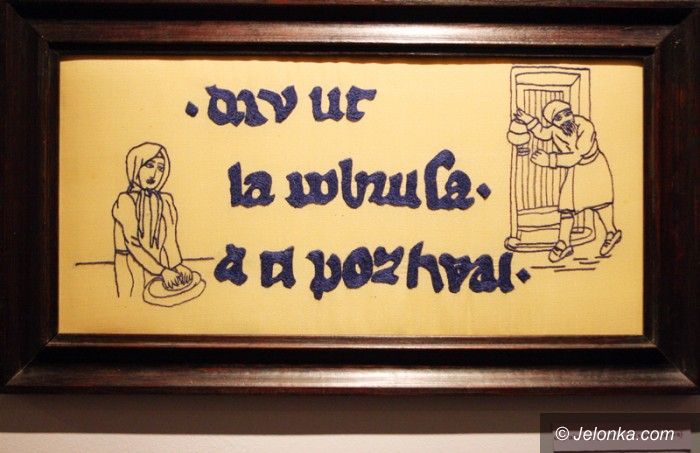 ·day ut
ia pobrusa·
a ti poziwai·
© Jelonka.com